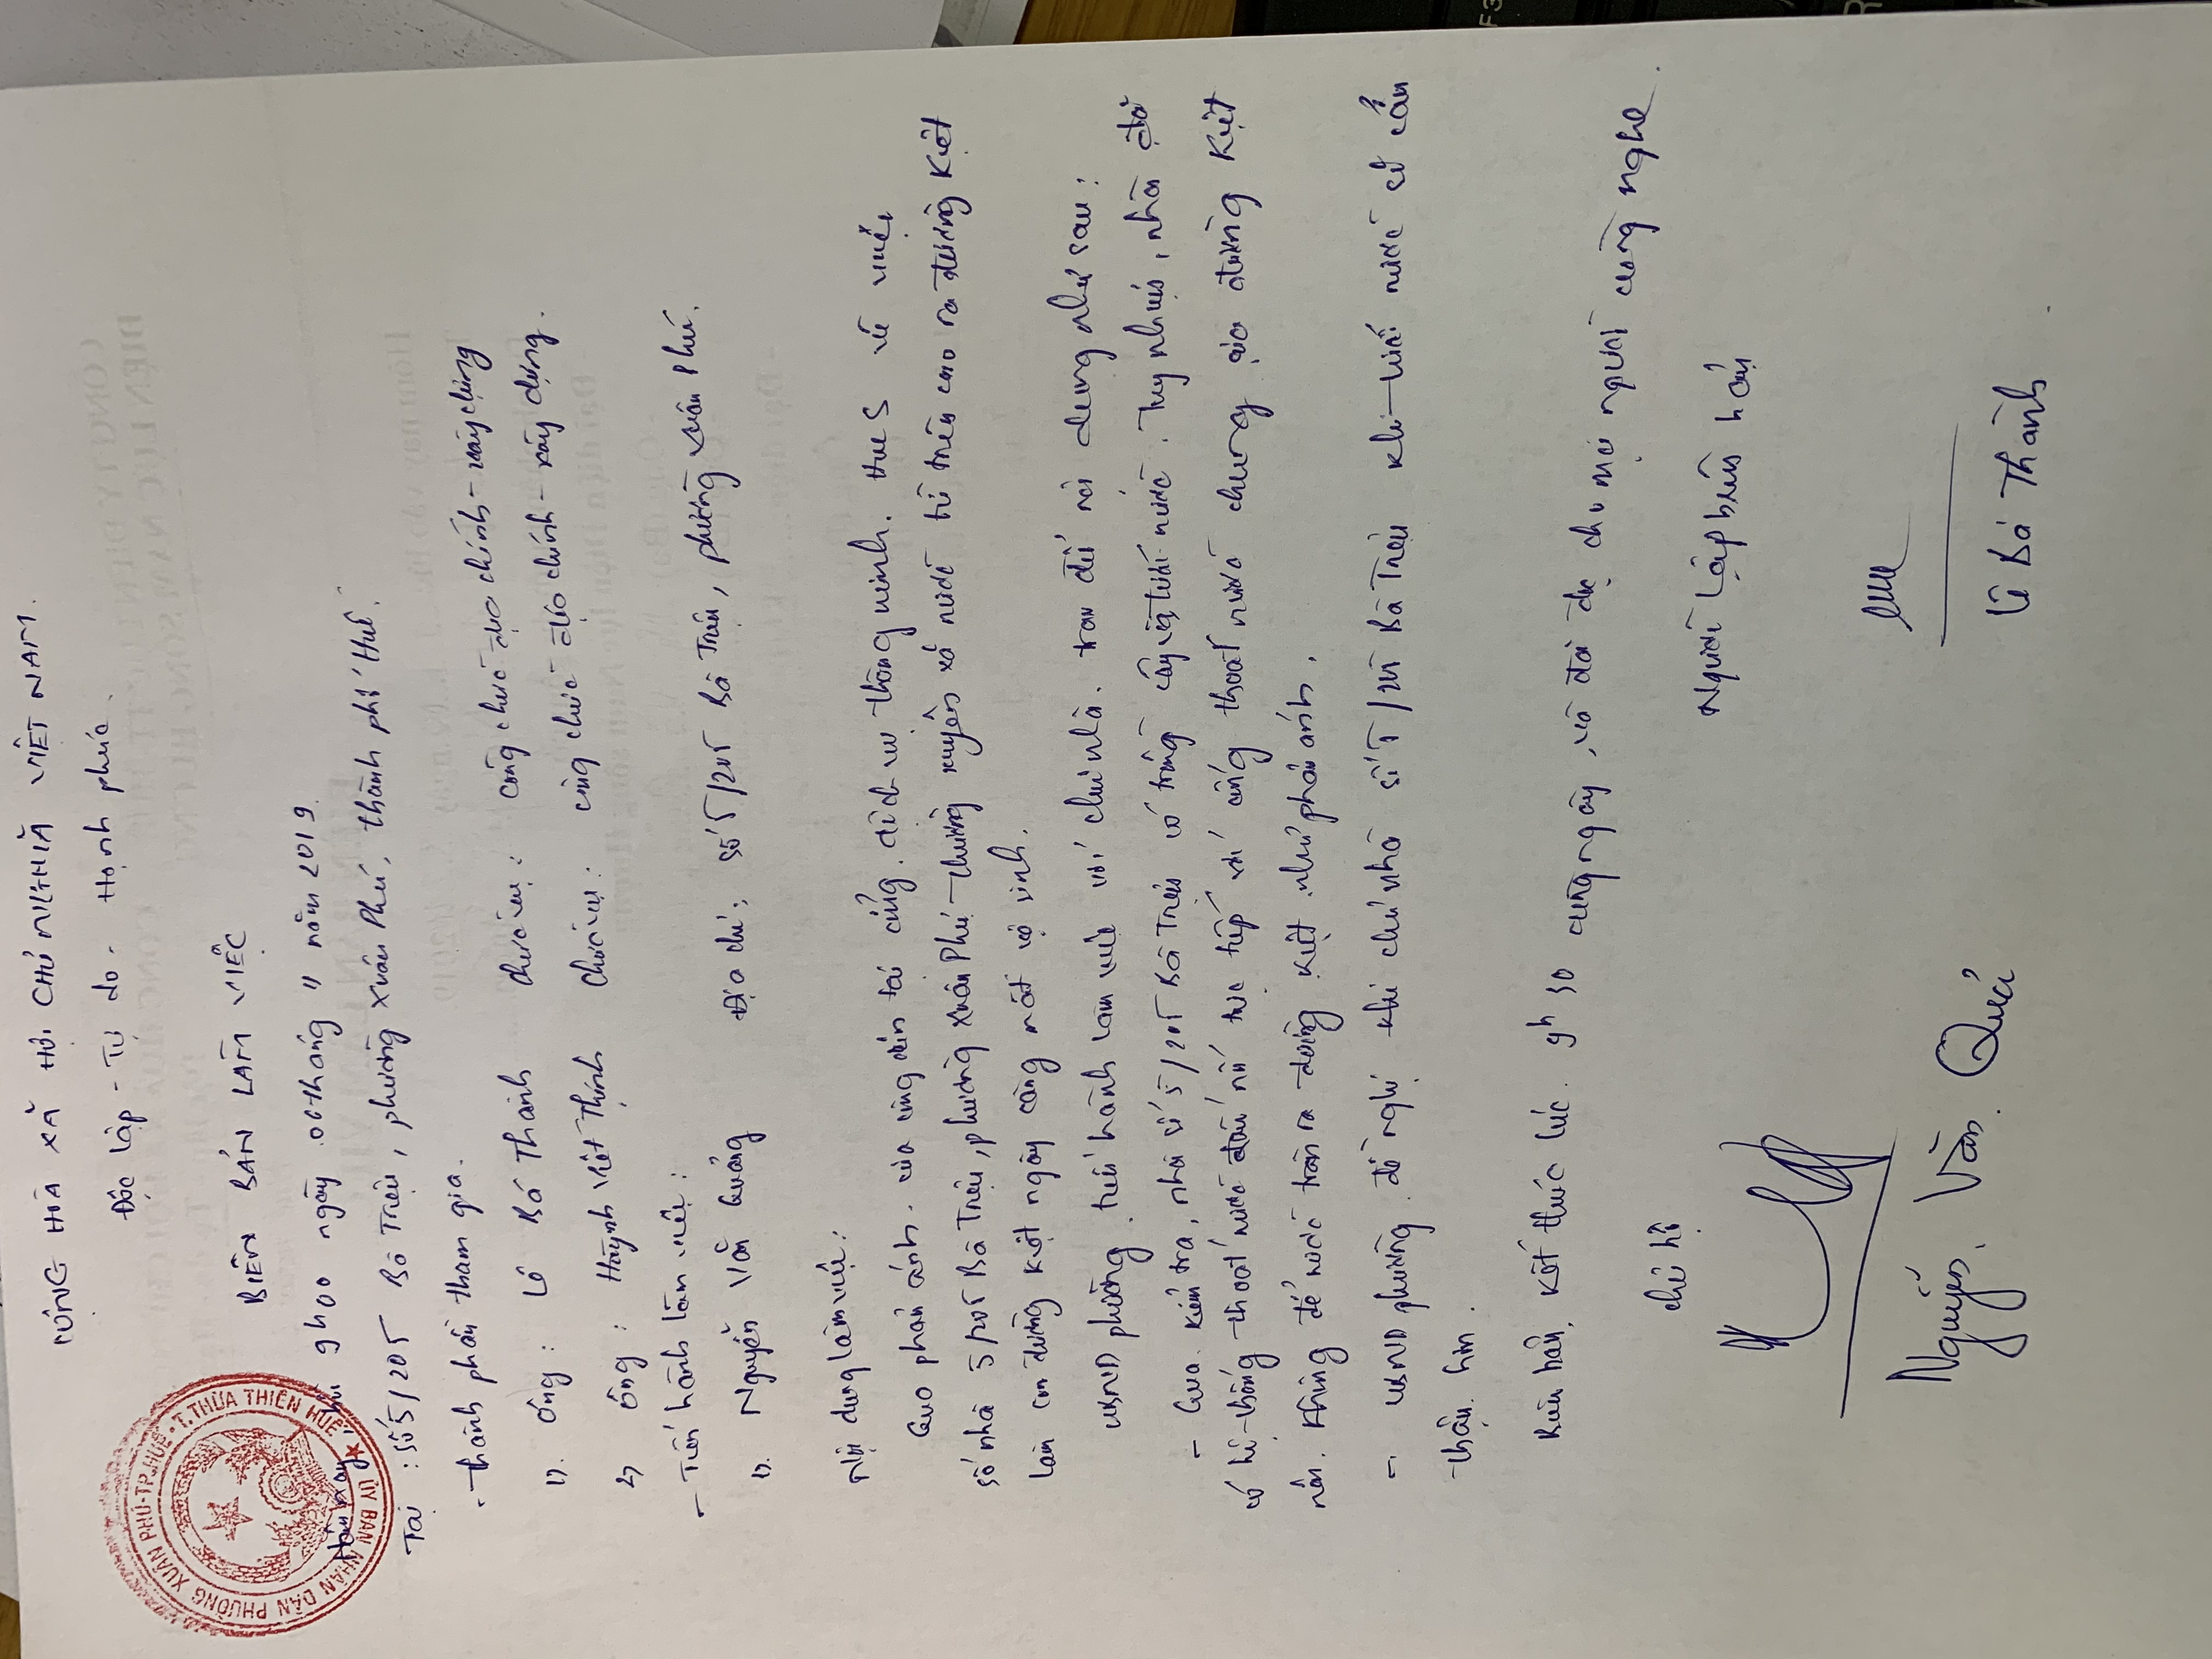 CỘNG HÒA XÃ HỘI CHỦ NGHĨA VIỆT NAM.
Độc lập - Tự do - Hạnh phúc.
BIÊN BẢN LÀM VIỆC
Hôm nay, hồi 9h00 ngày 06 tháng 11 năm 2019.
Tại : số 5/205 Bà Triệu, phường Xuân Phú, thành phố Huế.
- Thành phần tham gia.
1). Ông : Lê Bá Thành chức vụ : công chức địa chính - xây dựng
2) Ông : Huỳnh Viết Thịnh chức vụ : công chức địa chính - xây dựng.
- Tiến hành làm việc :
1). Nguyễn Văn Quảng Địa chỉ : số 5/205 Bà Triệu, phường Xuân Phú.
Nội dung làm việc :
Qua phản ánh của công dân tại cổng dịch vụ thông minh. HueS về việc
số nhà 5/205 Bà Triệu, phường Xuân Phú - thường xuyên xả nước từ trên cao ra đường Kiệt
làm con đường kiệt ngày càng mất vệ sinh.
UBND phường tiến hành làm việc với chủ nhà. trao đổi nội dung như sau :
- Qua kiểm tra, nhà số 5/205 Bà Triệu có trồng cây và tưới nước. Tuy nhiên, nhà đã
có hệ thống thoát nước đấu nối trực tiếp với cống thoát nước chung của đường Kiệt
nên. Không để nước tràn ra đường Kiệt như phản ánh.
- UBND phường đề nghị chủ nhà số 5/205 Bà Triệu khi tưới nước sẽ cẩn
thận hơn.
Biên bản kết thúc lúc 9h30 cùng ngày, và đã đọc cho mọi người cùng nghe.
Chủ hộ Người lập biên bản
Nguyễn Văn Quả Lê Bá Thành
ỦY BAN NHÂN DÂN PHƯỜNG XUÂN PHÚ - TP.HUẾ - T.THỪA THIÊN HUẾ